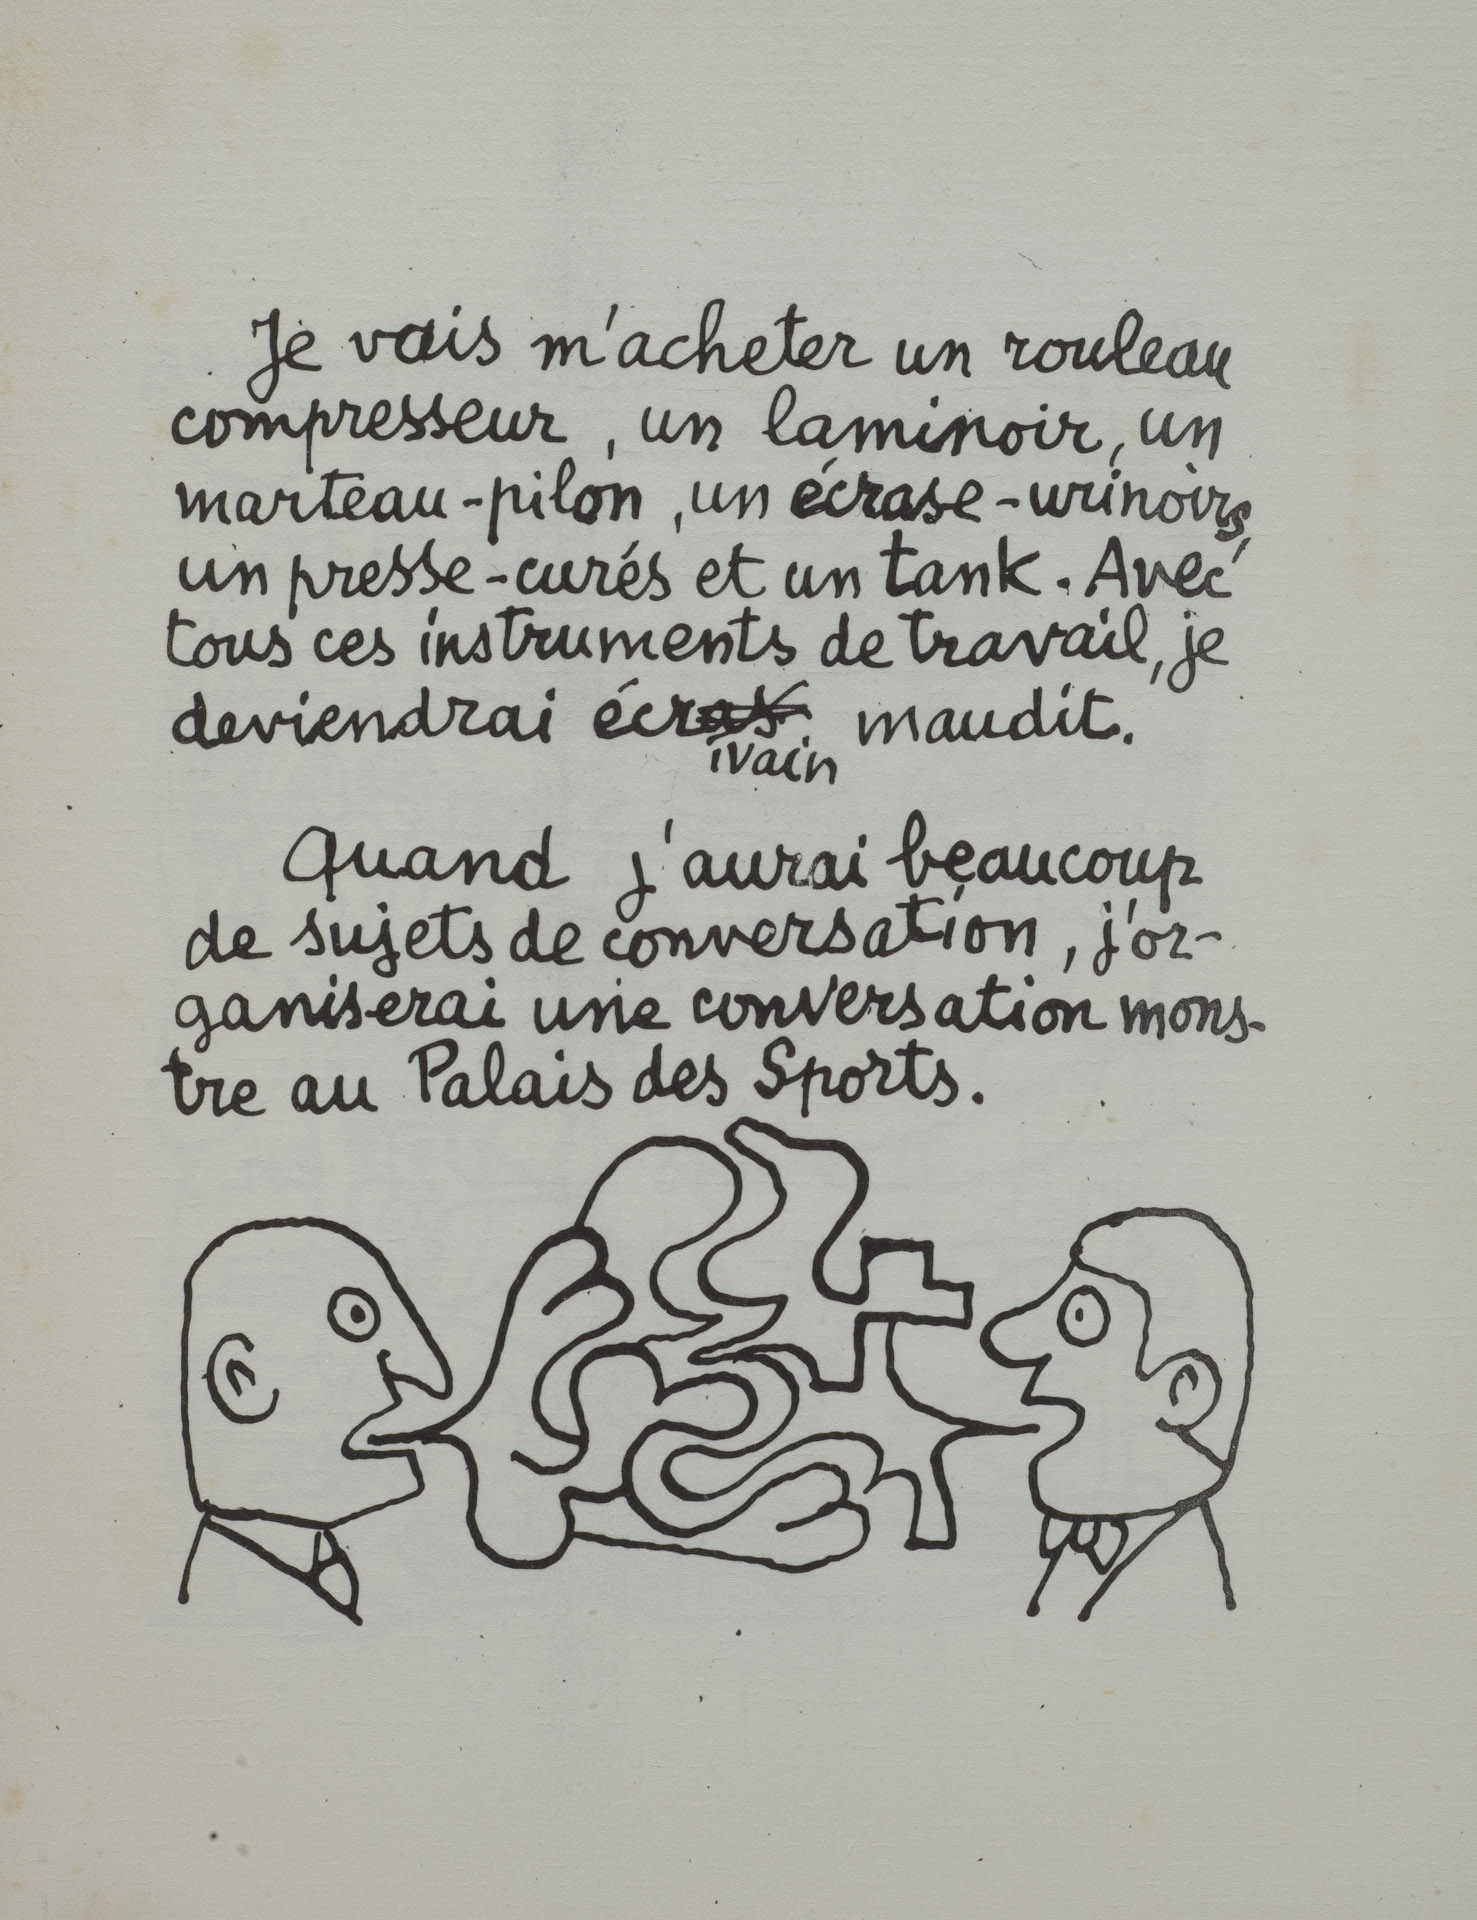 Je vais m'acheter un rouleau
compresseur, un laminoir, un
marteau-pilon, un écrase-urinoirs,
un presse-curés et un tank. Avec
tous ces instruments de travail, je
deviendrai écras maudit.
ivain
Quand j'aurai beaucoup
de sujets de conversation, j'or-
ganiserai une conversation mons-
tre au Palais des Sports.